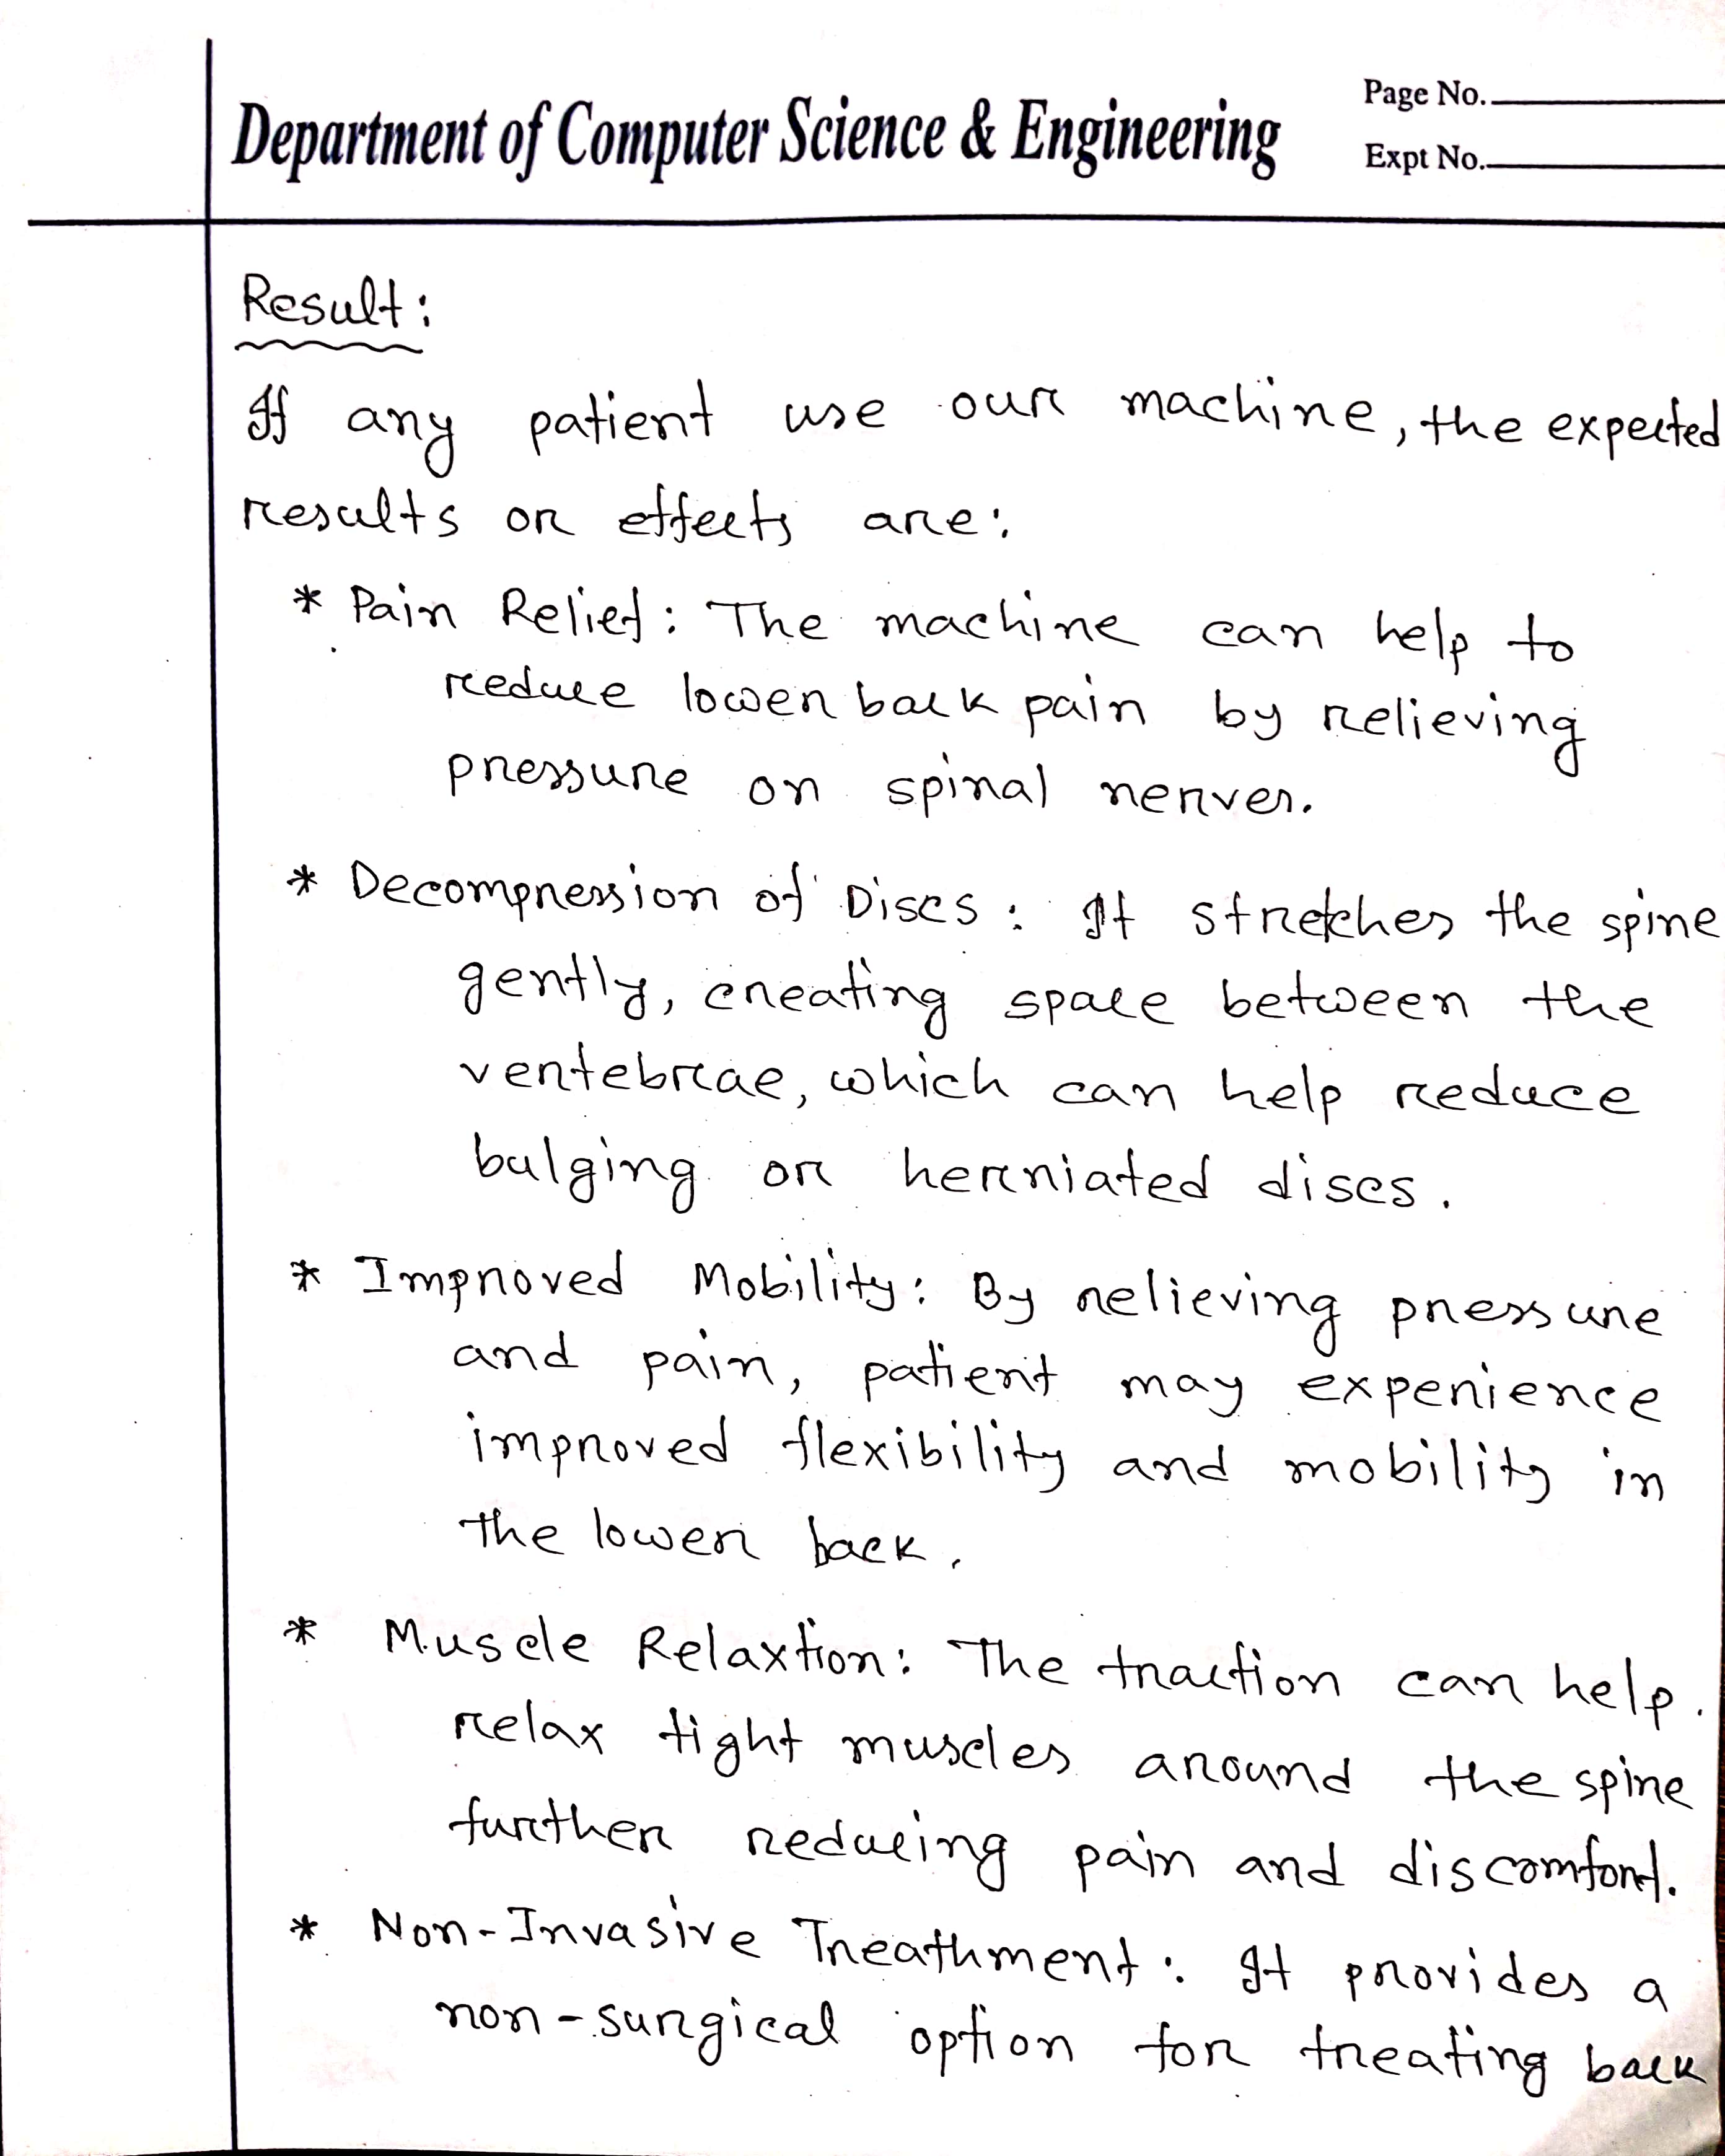 Department of Computer Science & Engineering
Page No.
Expt No.
Result:
If any patient use our machine, the expected
results or effects are:
* Pain Relief: The machine can help to
reduce lower back pain by relieving
pressure on spinal nerves.
* Decompression of Discs: It stretches the spine
gently, creating space between the
vertebrae, which can help reduce
bulging or herniated discs.
* Improved Mobility: By relieving pressure
and pain, patient may experience
improved flexibility and mobility in
the lower back.
* Muscle Relaxtion: The traction can help
relax tight muscles around the spine
further reducing pain and discomfort.
* Non-Invasive Treathment: It provides a
non-surgical option for treating back